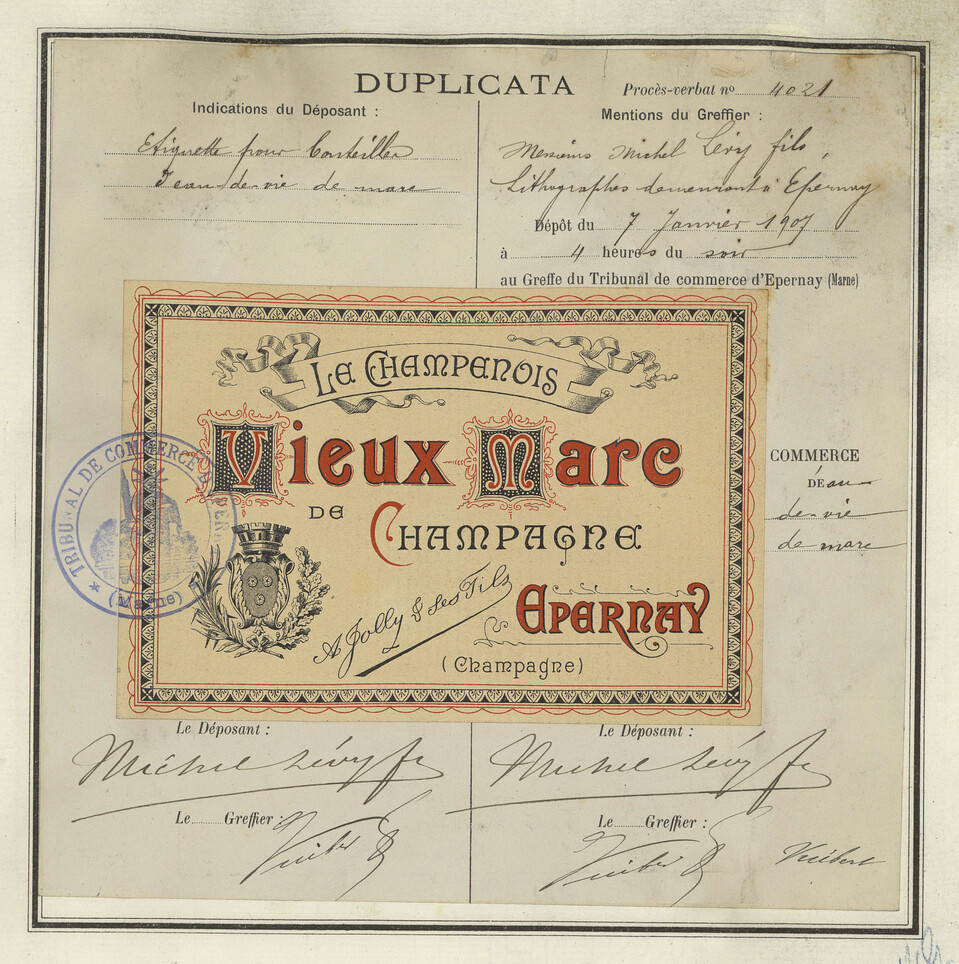 DUPLICATA
Procès-verbal nº 4021
Indications du Déposant :
Etiquette pour Bouteilles
d'eau-de-vie de marc
Mentions du Greffier :
Messieurs Michel Lévy fils,
Lithographes demeurant à Epernay
Dépôt du 7 Janvier 1907
à 4 heures du soir
au Greffe du Tribunal de commerce d'Epernay (Marne)
LE CHAMPENOIS
Vieux Marc
DE
CHAMPAGNE
A Jolly & Ses Fils
EPERNAY
(Champagne)
TRIBUNAL DE COMMERCE
(Marne)
COMMERCE
D'Eau-
de-vie
de marc
Le Déposant :
Michel Lévy fs
Le Greffier :
Le Déposant :
Michel Lévy fs
Le Greffier :